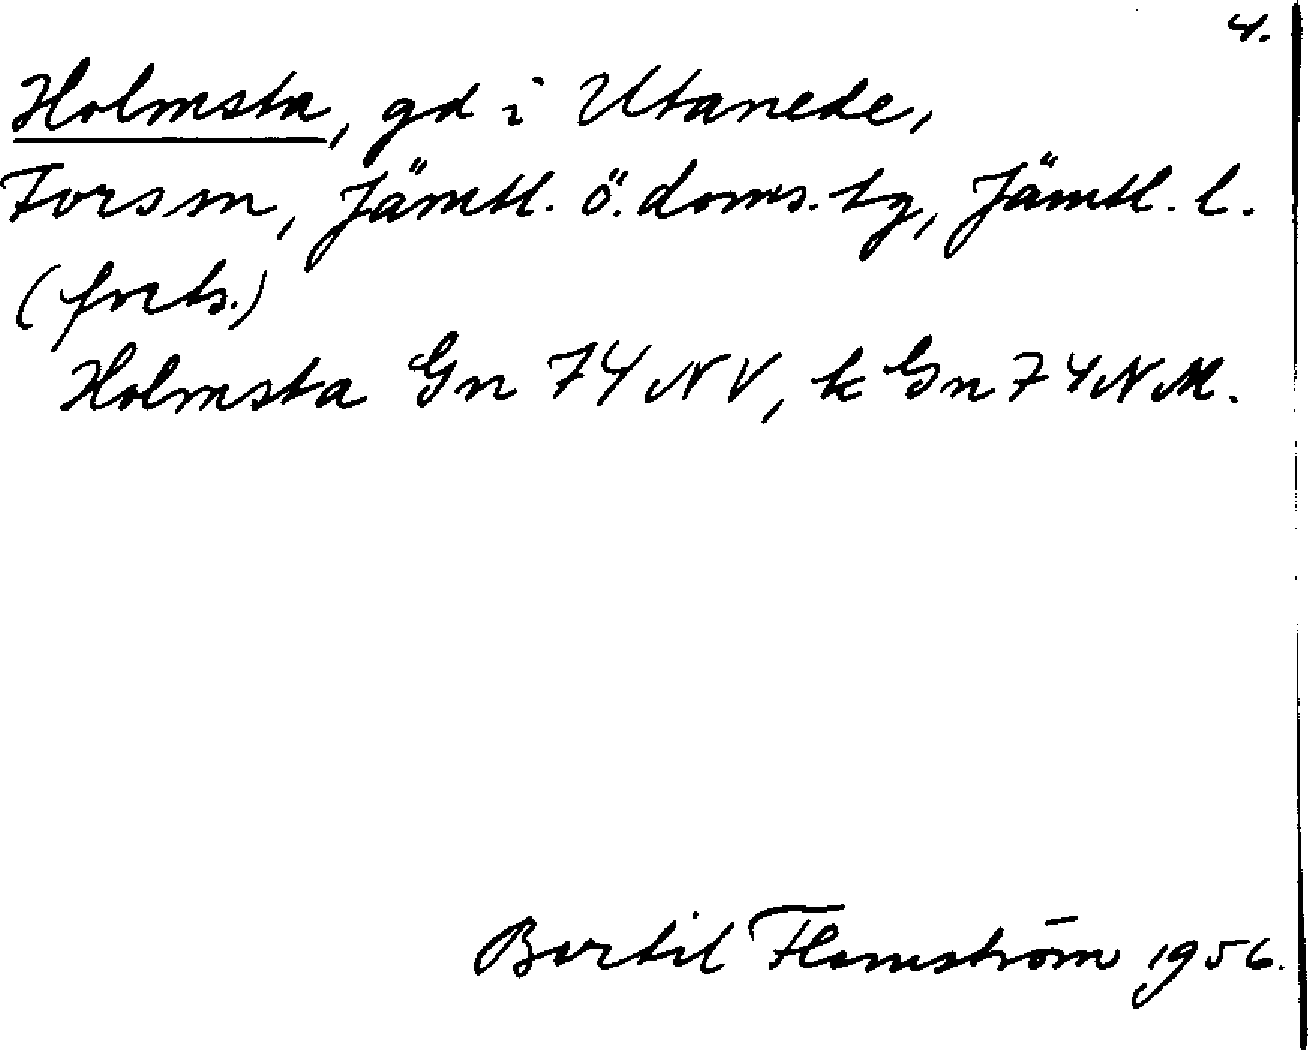 4.
Holmsta, gd i Utanede,
Fors sn, Jämtl. ö. doms. tg, Jämtl. l.
(forts.)
Holmsta Gn 74 NV, k Gn 74 NM.
Bertil Flemström 1956.